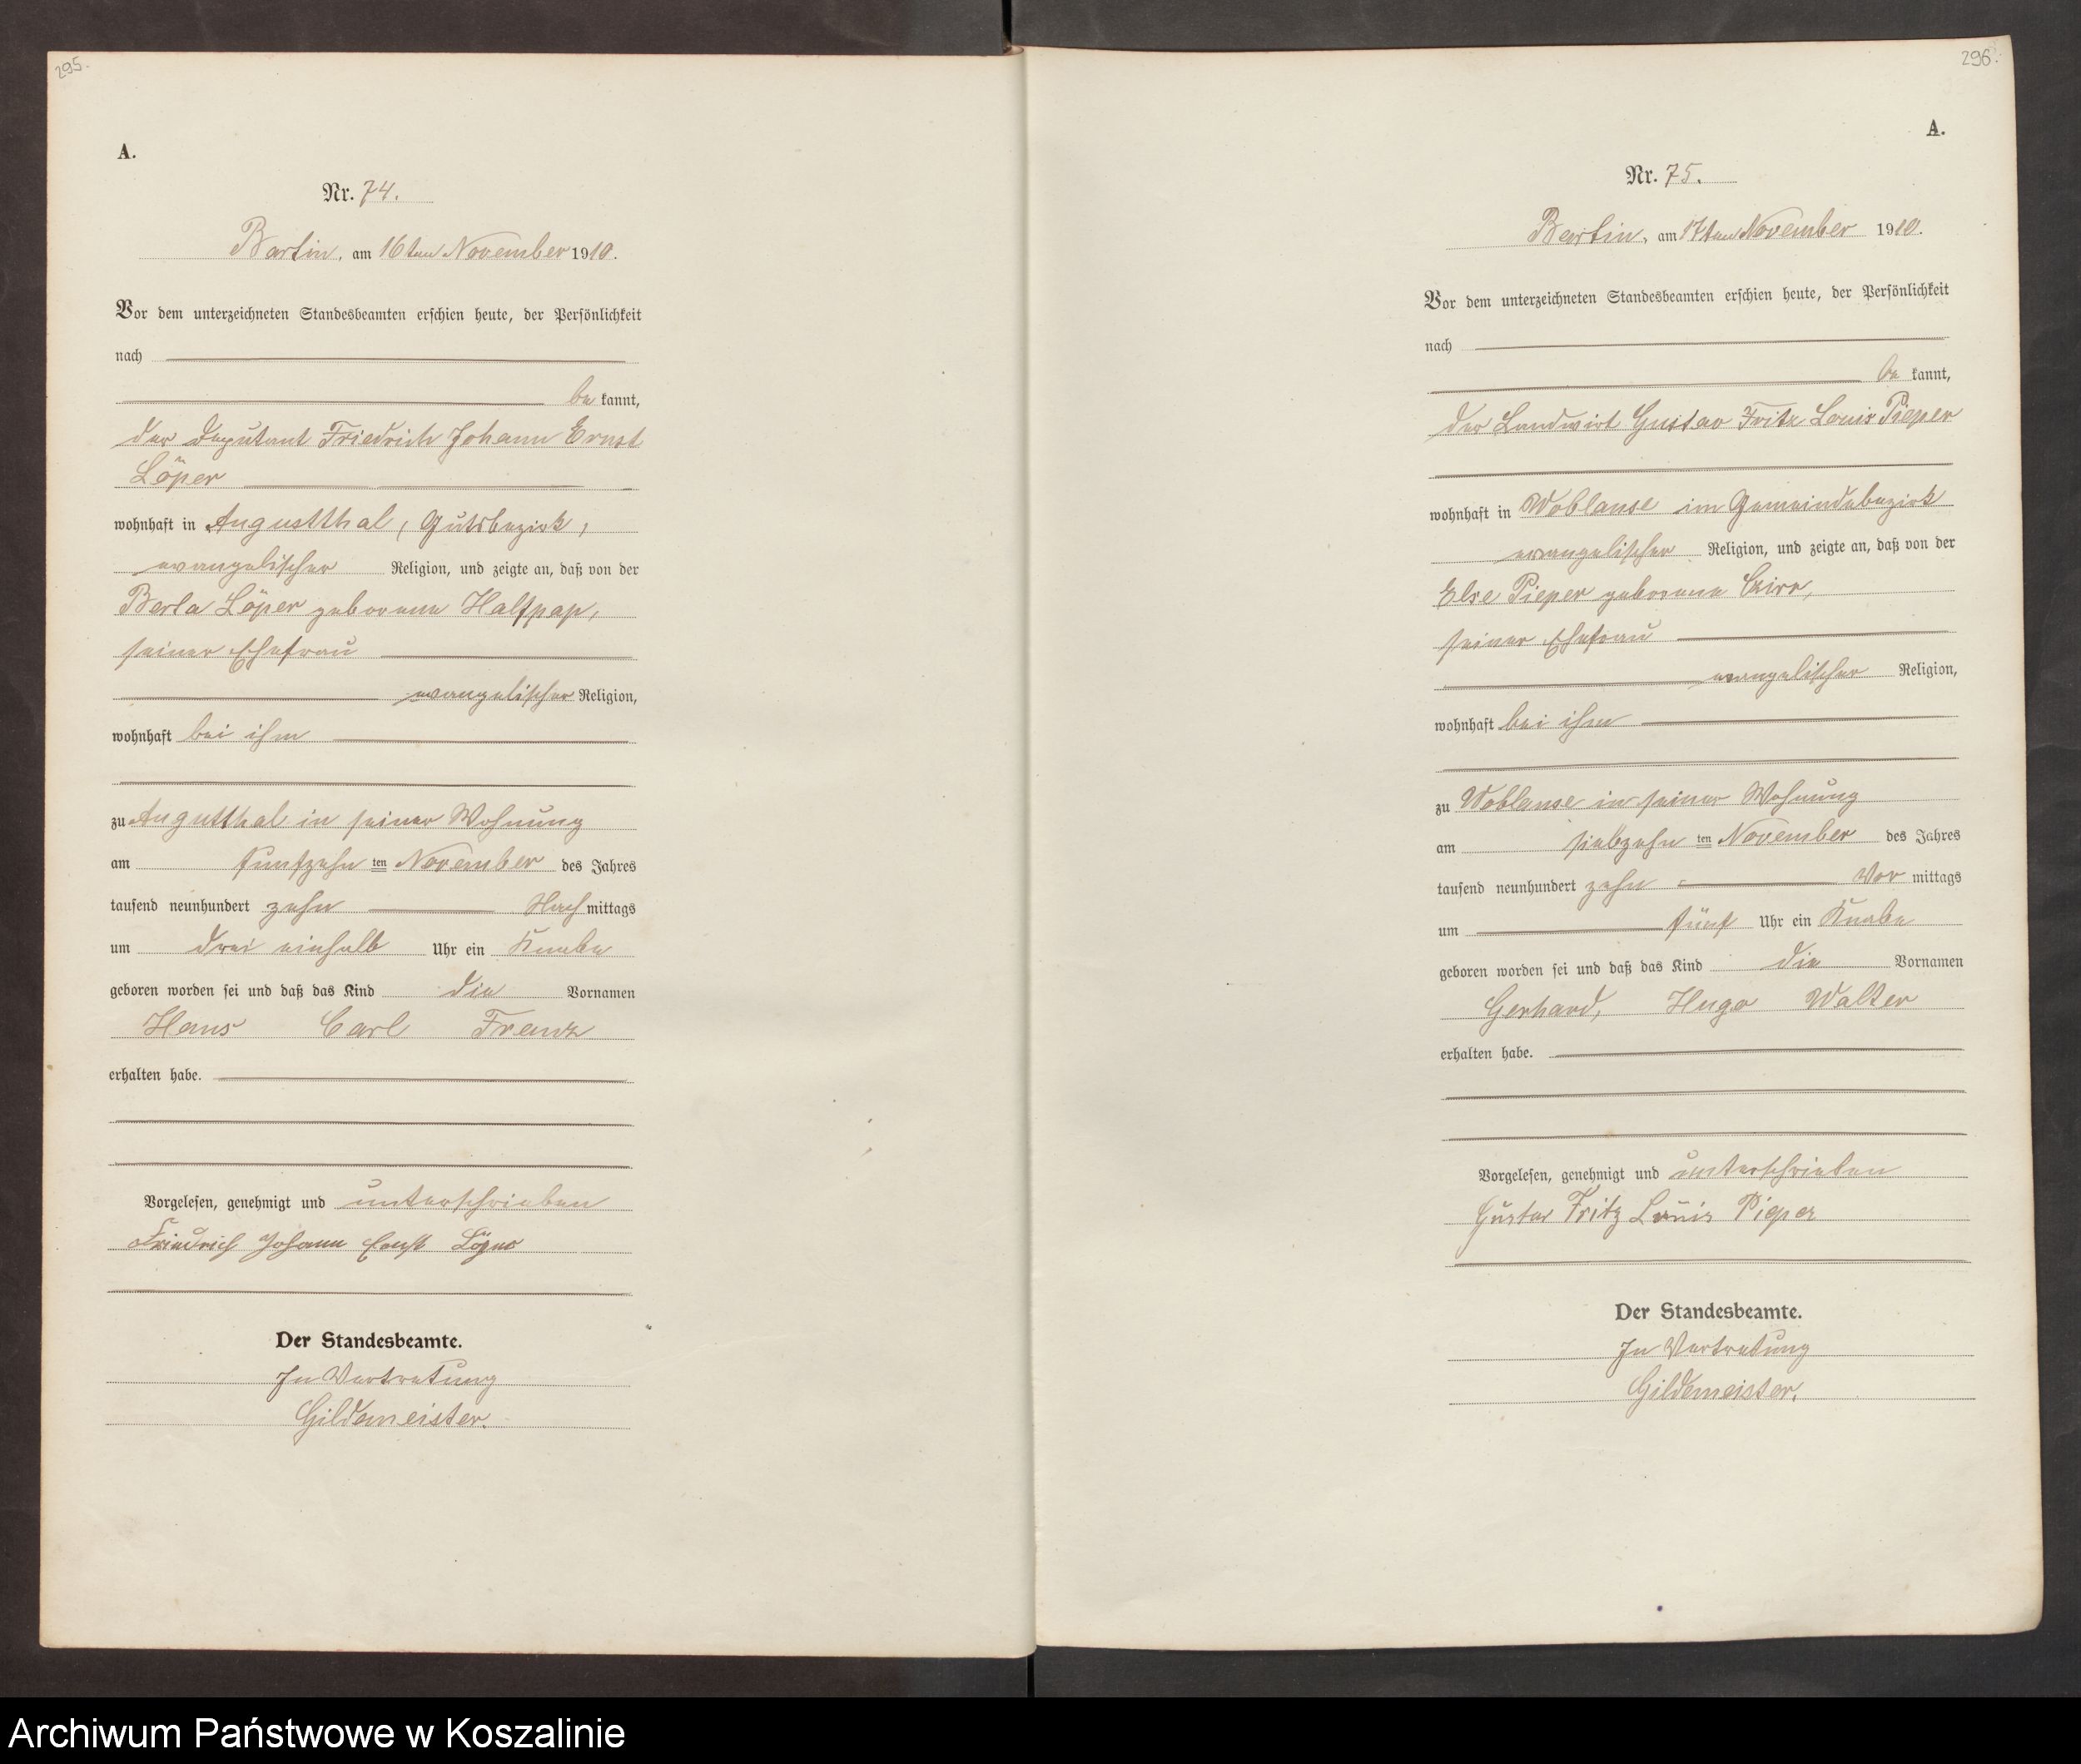 295.
A.
Nr. 74.
Bartin, am 16ten November 1910.
Vor dem unterzeichneten Standesbeamten erschien heute, der Persönlichkeit
nach
be kannt,
der Deputant Friedrich Johann Ernst
Löper
wohnhaft in Augustthal, Gutsbezirk,
evangelischer Religion, und zeigte an, daß von der
Berta Löper geborene Halfpap,
seiner Ehefrau
evangelischer Religion,
wohnhaft bei ihm
zu Augutthal in seiner Wohnung
am fünfzehn ten November des Jahres
tausend neunhundert zehn Nach mittags
um drei einhalb Uhr ein Knabe
geboren worden sei und daß das Kind die Vornamen
Hans Carl Franz
erhalten habe.
Vorgelesen, genehmigt und unterschrieben
Friedrich Johann Ernst Löper
Der Standesbeamte.
In Vertretung
Gildemeister.
296.
A.
Nr. 75.
Bartin, am 17ten November 1910.
Vor dem unterzeichneten Standesbeamten erschien heute, der Persönlichkeit
nach
be kannt,
der Landwirt Gustav Fritz Louis Pieper
wohnhaft in Woblanse im Gemeindebezirk
evangelischer Religion, und zeigte an, daß von der
Else Pieper geborene
seiner Ehefrau
evangelischer Religion,
wohnhaft bei ihm
zu Woblanse in seiner Wohnung
am siebzehn ten November des Jahres
tausend neunhundert zehn Vor mittags
um fünf Uhr ein Knabe
geboren worden sei und daß das Kind die Vornamen
Gerhard, Hugo Walter
erhalten habe.
Vorgelesen, genehmigt und unterschrieben
Gustav Fritz Louis Pieper
Der Standesbeamte.
In Vertretung
Gildemeister.
Archiwum Państwowe w Koszalinie